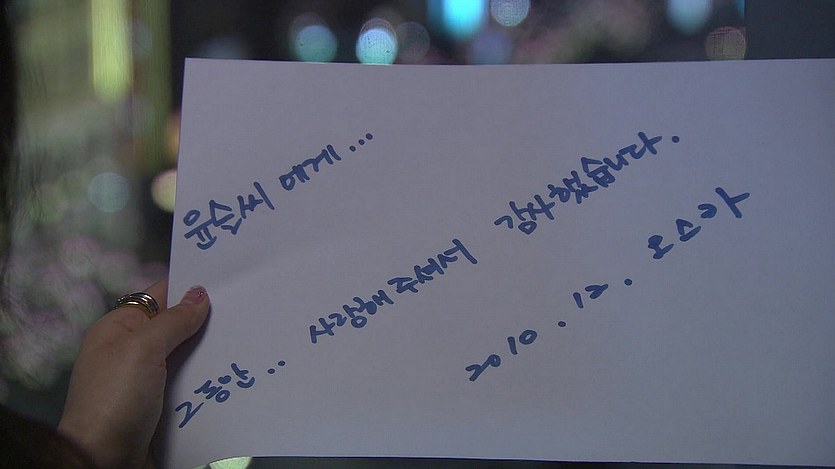 윤슬씨 에게...
그동안.. 사랑해주셔서 감사했습니다.
2010.12. 오스카